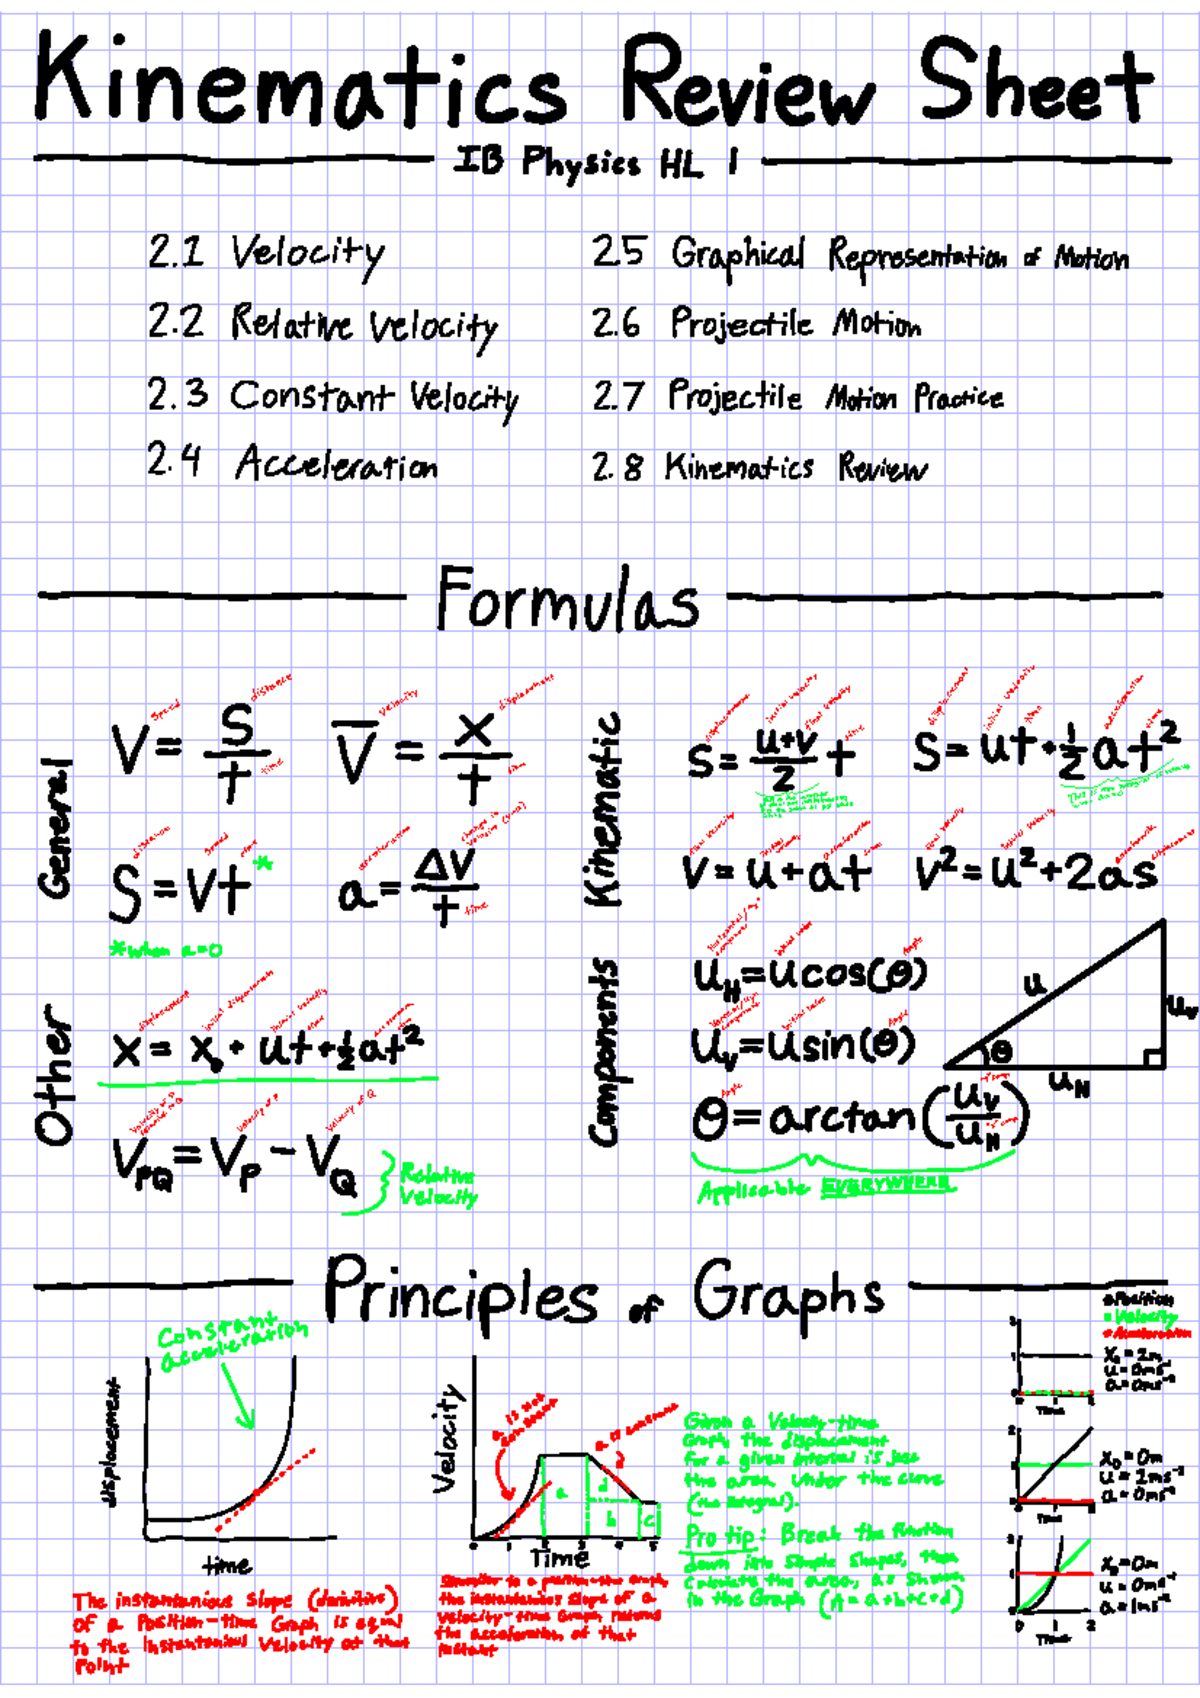 Kinematics Review Sheet
IB Physics HL 1
2.1 Velocity
2.2 Relative Velocity
2.3 Constant Velocity
2.4 Acceleration
2.5 Graphical Representation of Motion
2.6 Projectile Motion
2.7 Projectile Motion Practice
2.8 Kinematics Review
Formulas
General
speed distance
V = S/t
time
velocity displacement
V̄ = X/t
time
distance speed time
S = Vt *
*when a=0
acceleration change in velocity
a = ΔV/t
time
Kinematic
displacement initial velocity final velocity time
S = (u+v)/2 t
displacement initial velocity time acceleration time
S = ut + ½at²
final velocity initial velocity acceleration time
V = u + at
final velocity initial velocity acceleration displacement
V² = u² + 2as
Other
displacement initial displacement initial velocity time acceleration time
X = X₀ + ut + ½at²
Velocity of P Velocity of Q
V_PQ = V_P - V_Q
Relative
Velocity
Components
Horizontal component initial value Angle
u_H = ucos(θ)
initial value Angle
u_V = usin(θ)
Angle
θ = arctan(u_V/u_H)
Applicable EVERYWHERE
u
u_V
θ
u_H
Principles of Graphs
Constant
acceleration
displacement
time
The instantanious Slope (derivitive)
of a Position-time Graph is equal
to the Instantanious Velocity at that
Point
Velocity
a is not constant
a is constant
a
d
b
c
0 1 2 3 4 5
Time
Simmiler to a position-time Graph,
the instantanious slope of a
velocity-time Graph returns
the acceleration of that
instant
Given a Velocity-time
Graph the displacement
for a given interval is just
the area under the curve
(the integral).
Pro tip: Break the function
down into Simple Shapes, then
Calculate the area, as Shown
in the Graph (A = a+b+c+d)
Position
Velocity
Acceleration
X₀ = 2m
u = 0ms⁻¹
a = 0ms⁻²
Time
X₀ = 0m
u = 2ms⁻¹
a = 0ms⁻²
Time
X₀ = 0m
u = 0ms⁻¹
a = 1ms⁻²
0 1 2
Time